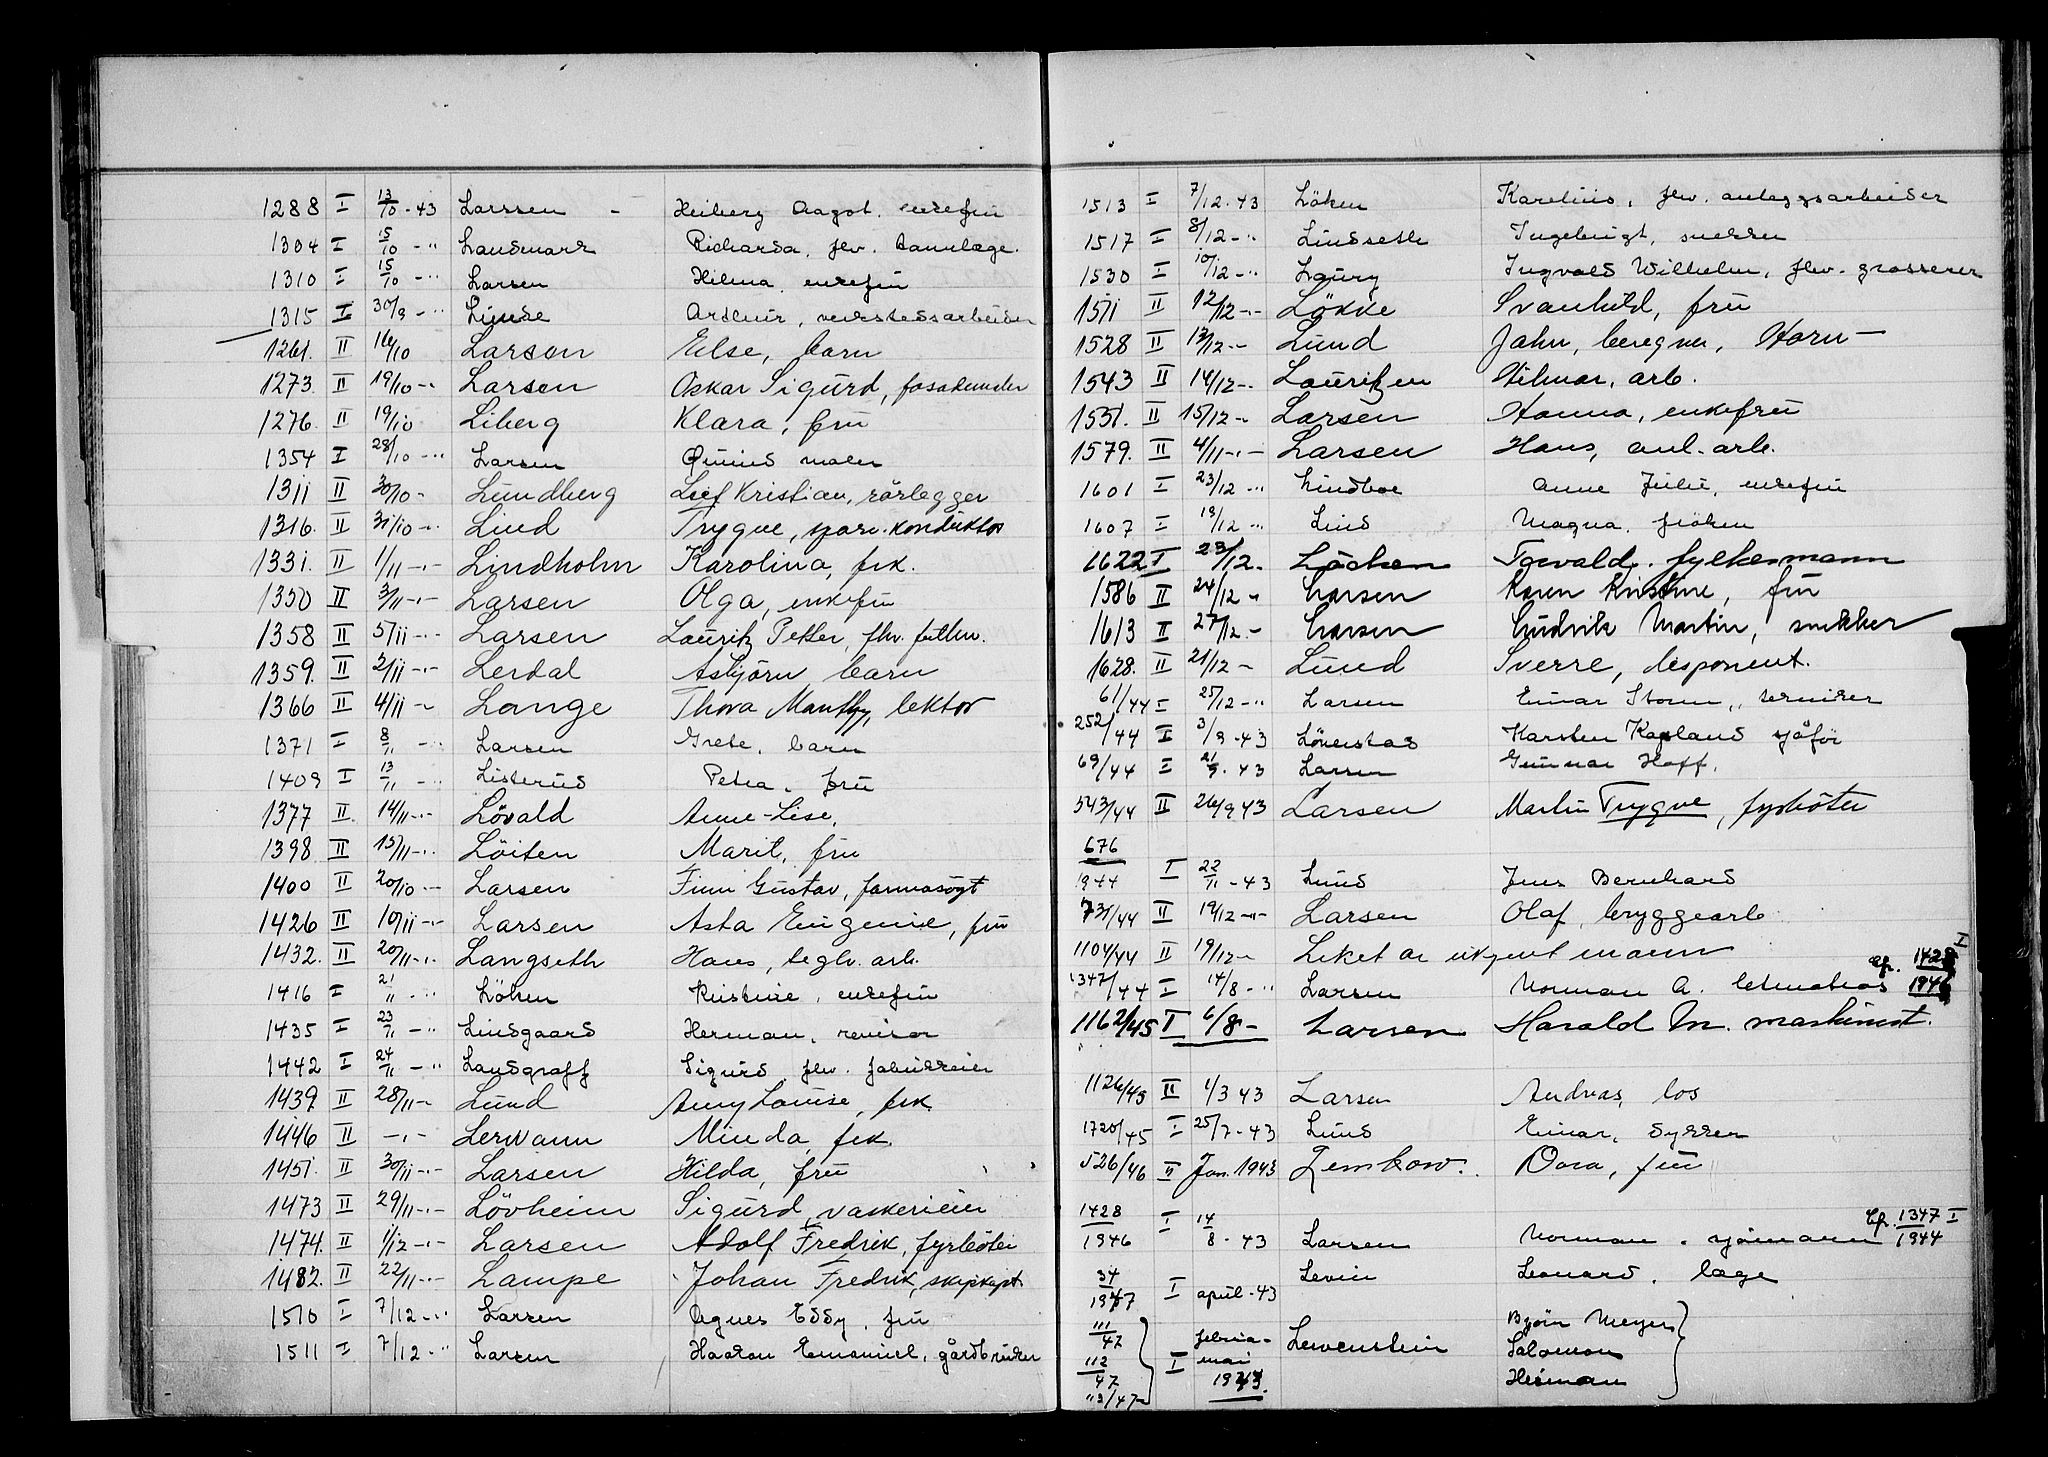 1288 I 13/10-43 Larssen - Heiberg Aagot. enkefru
1304 I 15/10 -" Landmark Richarda, fhv. tannlæge.
1310 I 15/10 -" Larsen Hilma, enkefru
1315 I 30/9 -" Linde Arthur, verkstedsarbeider
1261. II 16/10 Larsen Else, barn
1273. II 19/10 -" Larsen Oskar Sigurd,
1276. II 19/10 Liberg Klara, fru
1354 I 28/10 -" Larsen Øivind maler
1311 II 30/10 - Lundberg Leif Kristian, rörlegger
1316. II 31/10 -" Lind Trygve, sporv. konduktör
1331. II 1/11 -" Lindholm Karolina, frk.
1350 II 3/11 -" Larsen Olga, enkefru
1358 II 5/11 -" Larsen Lauritz Petter, fhv.
1359. II 2/11 -" Lerdal Asbjörn barn
1366 II 4/11 - Lange Thora Manthey, lektor
1371 I 8/11 -" Larsen Grete, barn
1409 I 13/11 -" Listerud Petra, fru
1377 II 14/11 -" Lövald Anne-Lise,
1398 II 15/11 -" Löiten Marit, fru
1400 II 20/10 - Larsen Finn Gustav, farmasöyt
1426 II 10/11 -" Larsen Asta Eugenie, fru
1432. II 20/11 -" Langseth Hans, teglv. arb.
1416 I 21/11 -" Löken Kristine, enkefru
1435 I 23/11 -" Lindgaard Herman, revisor
1442 I 24/11 -" Landgraff Sigurd, fhv. fabrikkeier
1439. II 28/11 - Lund Amy Louise, frk.
1446 II -"- Lermann Minda, frk.
1451. II 30/11 -" Larsen Hilda, fru
1473 II 29/11 -" Lövheim Sigurd, vaskerieier
1474. II 1/12 -" Larsen Adolf Fredrik, fyrböter
1482. II 22/11 -" Lampe Johan Fredrik, skipskapt
1510 I 7/12 -" Larsen Agnes Eddy, fru
1511 I 7/12 -" Larsen Haakon Emanuel, gårdbruker
1513 I 7/12-43 Löken Karelius, fhv. anleggsarbeider
1517 I 8/12 -" Lindseth Ingebrigt, snekker
1530 I 10/12 -" Laury Ingvald Wilhelm, fhv. grosserer
1511 II 12/12 -" Lökke Svanhild, fru
1528 II 13/12 - Lund John, beregner, Horn-
1543 II 14/12 -" Lauritzen Hilmar, arb.
1551. II 15/12 - Larsen Hanna, enkefru
1579. II 4/11 -" Larsen Hans, anl. arb.
1601 I 23/12 -" Lindboe Anne Julie, enkefru
1607 I 18/12 -" Lind Magna, fröken
1622 I 23/12. Löchen Torvald, fylkesmann
1586 II 24/12 " Larsen Karen Kristine, fru
1613 II 27/12 - Larsen Ludvik Martin, snekker
1628. II 21/12 - Lund Sverre, disponent.
61/44 I 25/12 -" Larsen Einar Storm, tekniker
252/44 I 3/9-43 Lövestad Karsten sjåför
69/44 I 21/9-43 Larsen Gunnar Hoff.
543/44 II 26/9 43 Larsen Martin Trygve, fyrböter
676/1944 I 22/11-43 Lund Jens Bernhard
731/44 II 19/12 -" Larsen Olaf, bryggearb
1104/44 II 19/12 - Liket av ukjent mann
1347/44 I 14/8 -" Larsen Norman A. letmatros Cf. 1428/1946 I
1162/45 I 6/8 - Larsen Harald M. maskinist.
1126/45 II 1/3 43 Larsen Andreas, los
1720/45 I 25/7-43 Lund Einar, dykker
526/46 II Jan. 1943 Lemkow. Dora, fru
1428/1946 I 14/8-43 Larsen Norman, sjömann Cf. 1347/1944 I
34/1947 I april-43 Levin Leonard, læge
111/47 Björn Meyer
112/47 I februar-mai 1943. Lewenstein Salomon
113/47 Herman